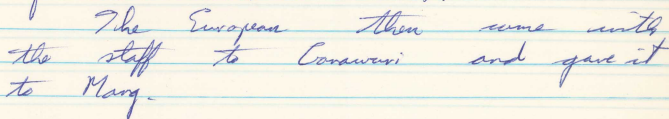 The European then came with
the staff to Conawuri and gave it
to Mang.